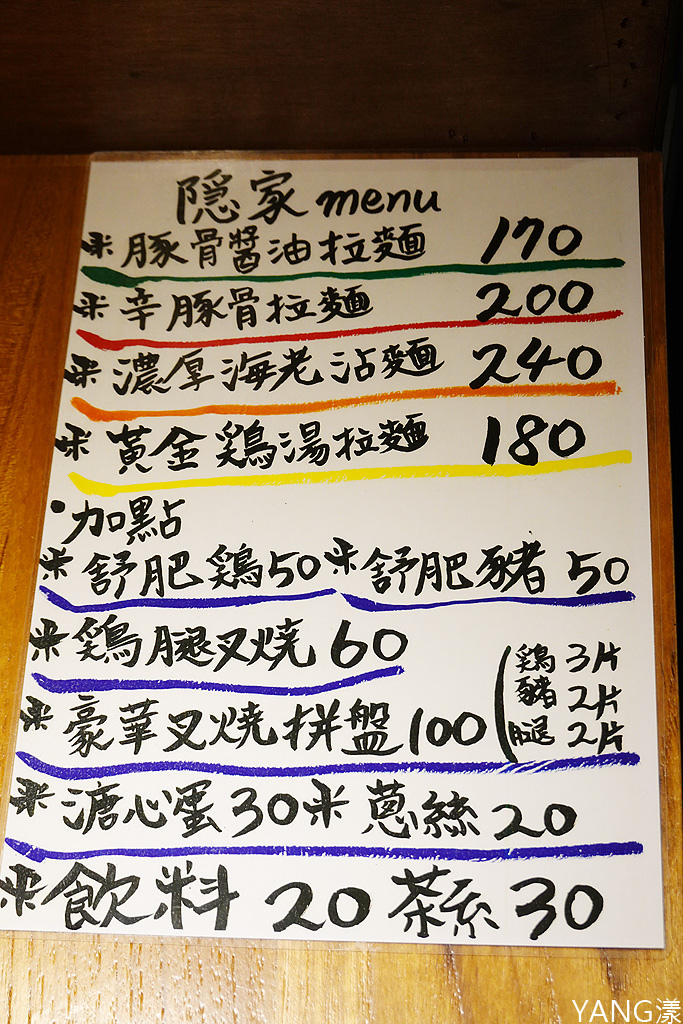 隠家 menu
※ 豚骨醬油拉麵 170
※ 辛豚骨拉麵 200
※ 濃厚海老沾麵 240
※ 黃金鶏湯拉麵 180
・加點
※ 舒肥鶏50 ※ 舒肥豬 50
※ 鶏腿叉燒 60
※ 豪華叉燒拼盤100
鶏 3片
豬 2片
腿 2片
※ 溏心蛋 30 ※ 蔥絲 20
※ 飲料 20 茶系 30
YANG漾